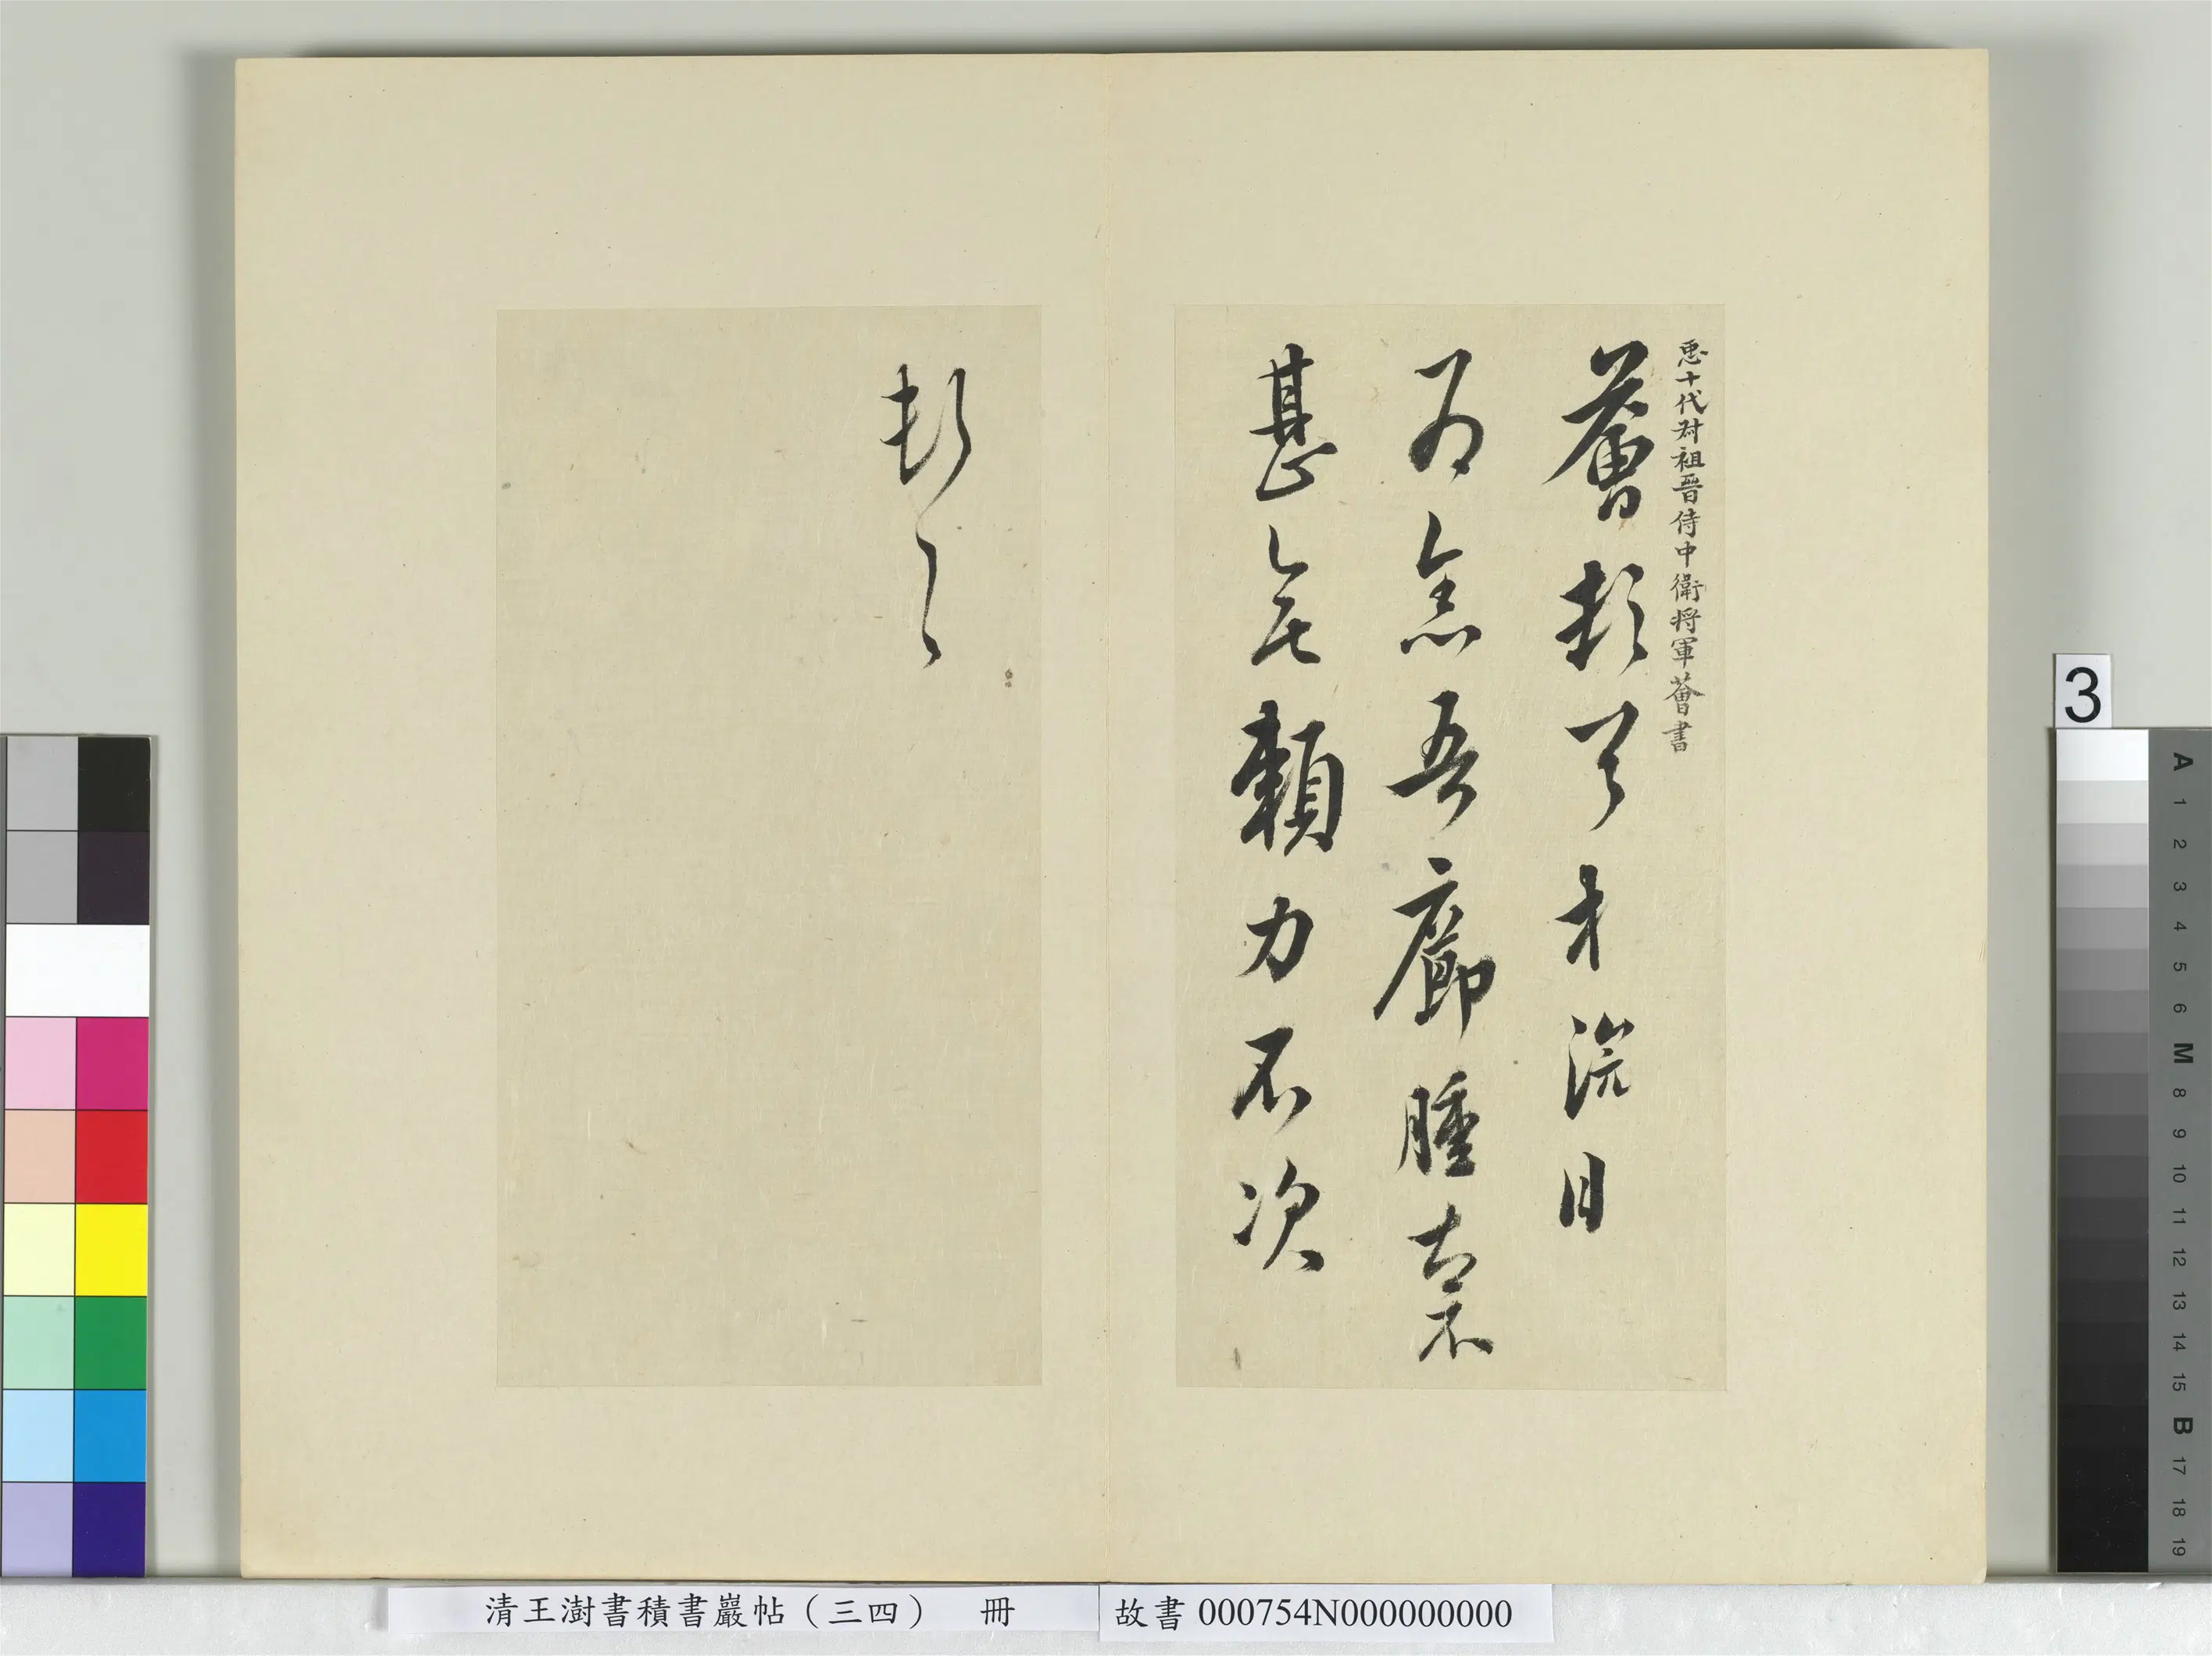 𢘑十代祖晉侍中衛將軍薈書
薈頓首才浣目
為念吾癤腫不
甚無賴力不次
頓首
清王澍書積書巖帖（三四） 冊
故書 000754N000000000
3
A
1
2
3
4
5
6
M
8
9
10
11
12
13
14
15
B
17
18
19